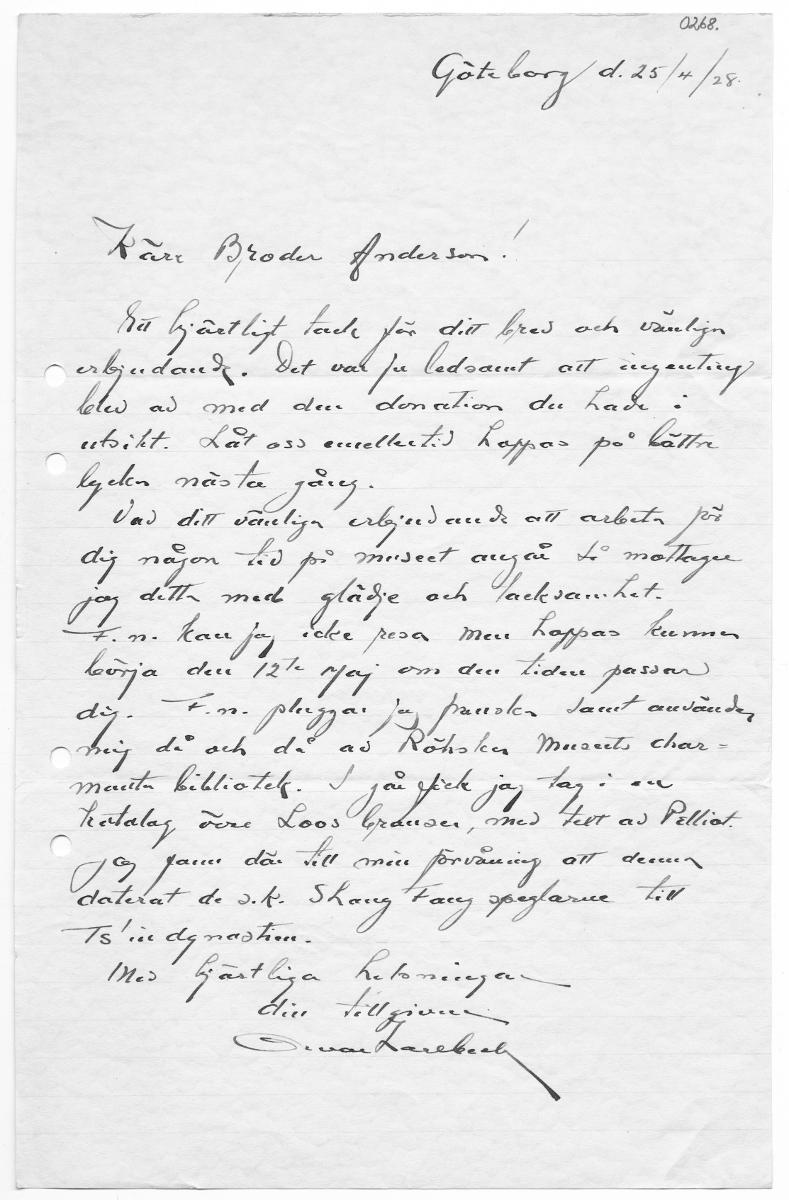 0268.
Göteborg d. 25/4/28.
Käre Broder Anderson!
Ett hjärtligt tack för ditt brev och vänliga
erbjudande. Det var ju ledsamt att ingenting
blev av med den donation du hade i
utsikt. Låt oss emellertid hoppas på bättre
lycka nästa gång.
Vad ditt vänliga erbjudande att arbeta för
dig någon tid på museet angår så mottager
jag detta med glädje och tacksamhet.
F.n. kan jag icke resa men hoppas kunna
börja den 12te Maj om den tiden passar
dig. F.n. pluggar jag franska samt använder
mig då och då av Röhska Museets char=
manta bibliotek. I går fick jag tag i en
katalog över Loos bronser, med text av Pelliot.
Jag fann där till min förvåning att denna
daterat de s.k. Shang Fang speglarne till
Ts'in dynastien.
Med hjärtliga hälsningar
din tillgivne
Orvar Karlbeck